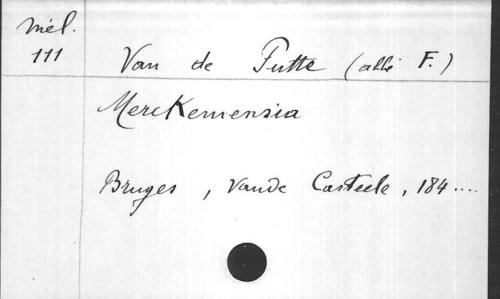 Mél.
111
Van de Putte (abbé F.)
Merckemensia
Bruges, Vande Casteele, 184....